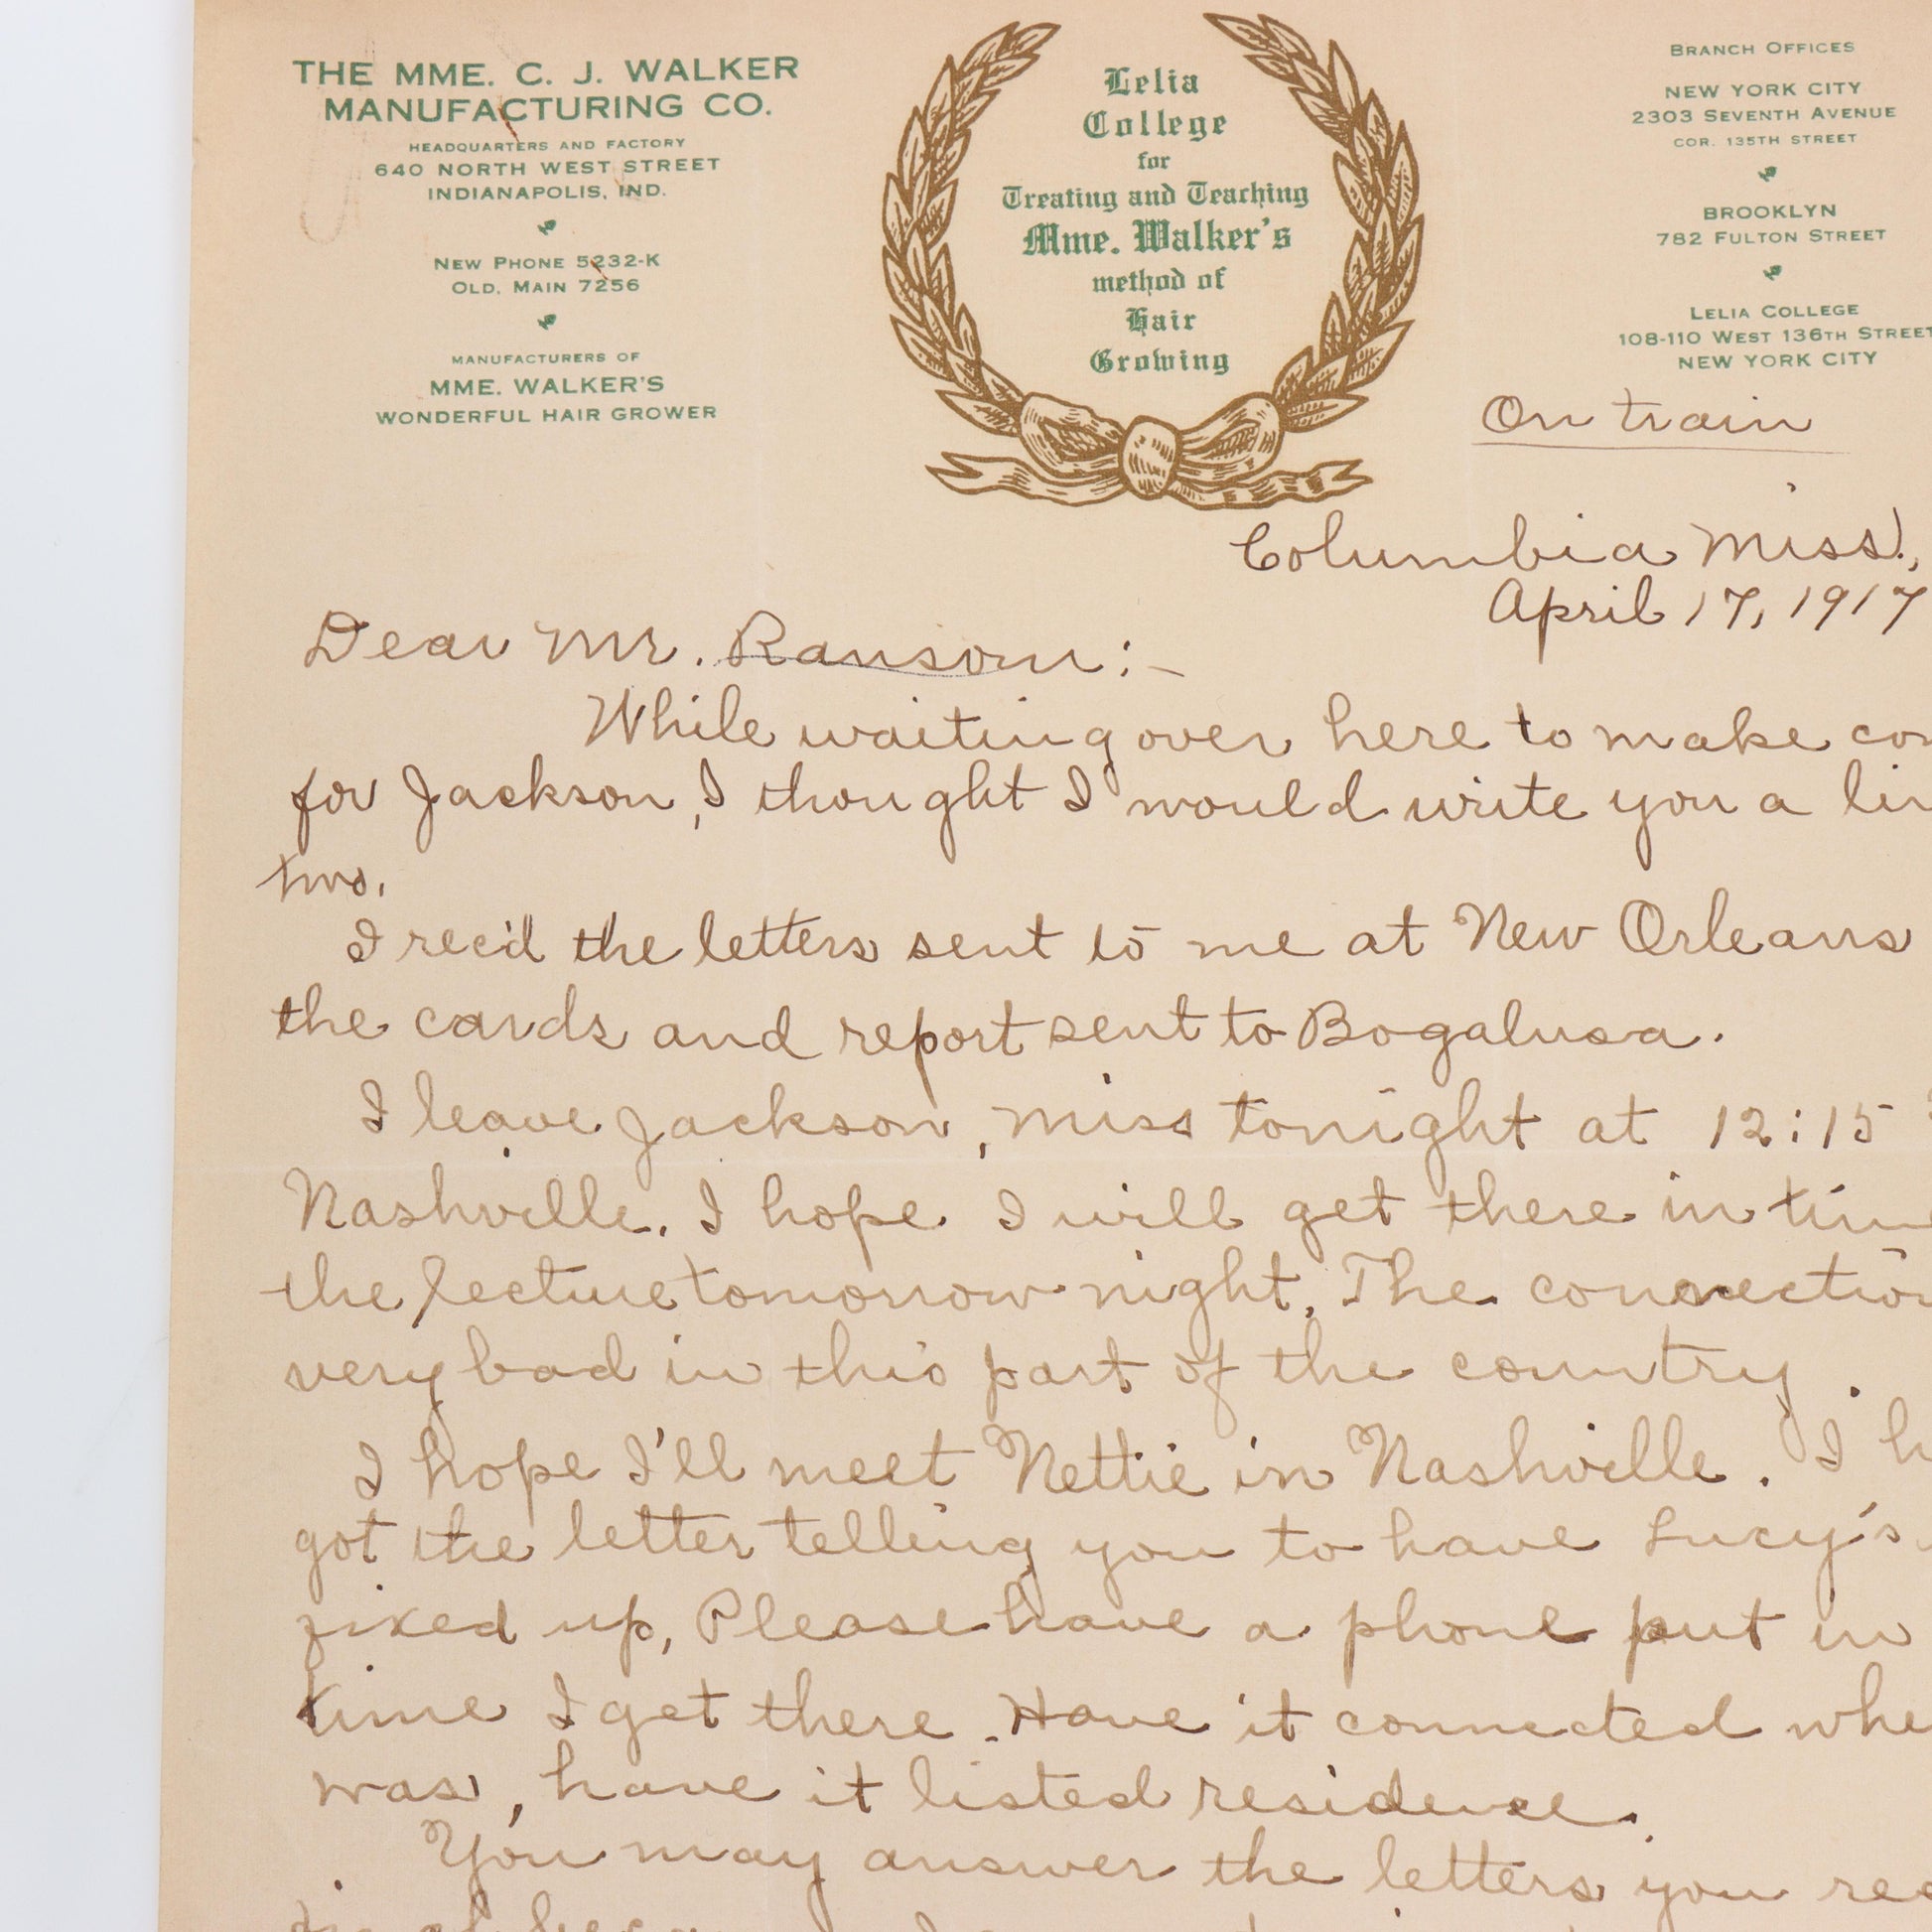 THE MME. C. J. WALKER
MANUFACTURING CO.
HEADQUARTERS AND FACTORY
640 NORTH WEST STREET
INDIANAPOLIS, IND.
NEW PHONE 5232-K
OLD, MAIN 7256
MANUFACTURERS OF
MME. WALKER'S
WONDERFUL HAIR GROWER
Lelia
College
for
Treating and Teaching
Mme. Walker's
method of
Hair
Growing
BRANCH OFFICES
NEW YORK CITY
2303 SEVENTH AVENUE
COR. 135TH STREET
BROOKLYN
782 FULTON STREET
LELIA COLLEGE
108-110 WEST 136TH STREET
NEW YORK CITY
On train
Columbia Miss.,
April 17, 1917
Dear Mr. Ransom:-
While waiting over here to make
for Jackson, I thought I would write you a
two.
I rec'd the letters sent to me at New Orleans
the cards and report sent to Bogalusa.
I leave Jackson, Miss tonight at 12:15
Nashville. I hope I will get there in
the lecture tomorrow night. The
very bad in this part of the country.
I hope I'll meet Nettie in Nashville. I
got the letter telling you to have Lucy's
fixed up, Please have a phone put in
time I get there. Have it connected
was, have it listed residence.
You may answer the letters you